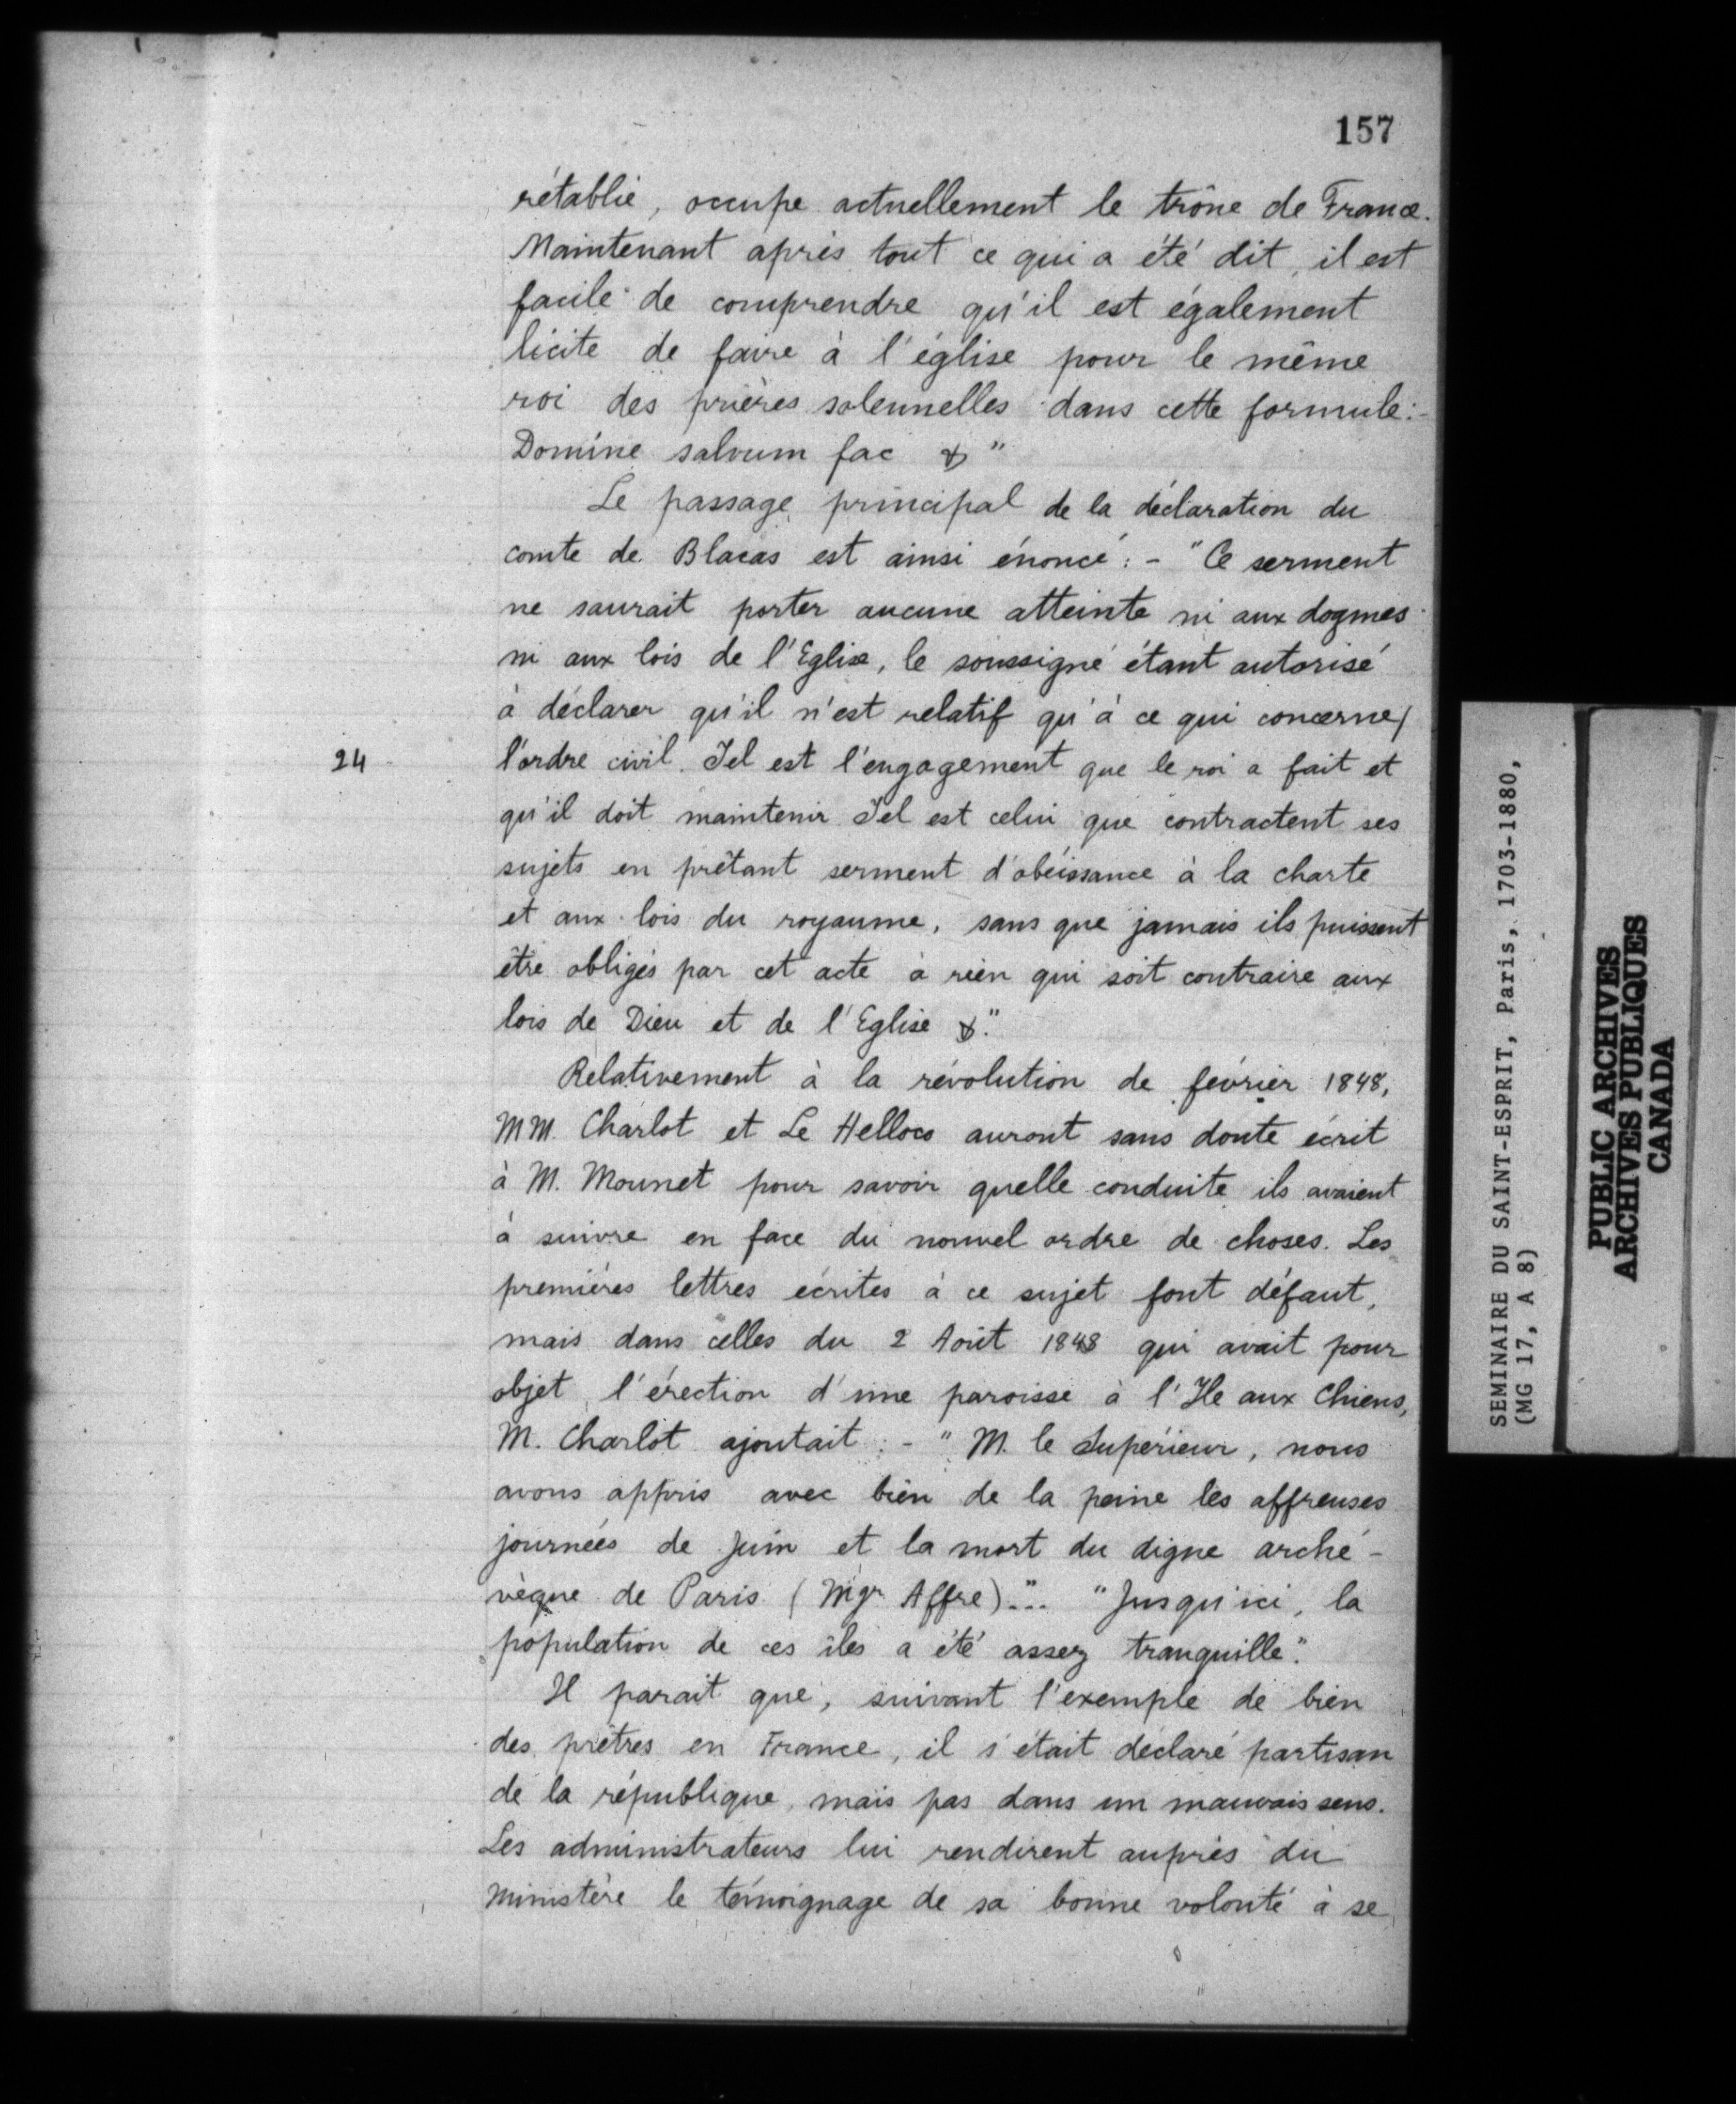 157
rétablie, occupe actuellement le trône de France.
Maintenant après tout ce qui a été dit, il est
facile de comprendre qu'il est également
licite de faire à l'église pour le même
roi des prières solennelles dans cette formule:-
Domine salvum fac &"
Le passage principal de la déclaration du
comte de Blacas est ainsi énoncé: - "Ce serment
ne saurait porter aucune atteinte ni aux dogmes
ni aux lois de l'Eglise, le soussigné étant autorisé
à déclarer qu'il n'est relatif qu'à ce qui concerne/
24 l'ordre civil. Tel est l'engagement que le roi a fait et
qu'il doit maintenir Tel est celui que contractent ses
sujets en prêtant serment d'obéissance à la charte
et aux lois du royaume, sans que jamais ils puissent
être obligés par cet acte à rien qui soit contraire aux
lois de Dieu et de l'Eglise &."
Relativement à la révolution de février 1848,
MM. Charlot et Le Helloco auront sans doute écrit
à M. Mounet pour savoir quelle conduite ils avaient
à suivre en face du nouvel ordre de choses. Les
premières lettres écrites à ce sujet font défaut,
mais dans celles du 2 Août 1848 qui avait pour
objet l'érection d'une paroisse à l'Ile aux Chiens,
M. Charlot ajoutait: - "M. le Supérieur, nous
avons appris avec bien de la peine les affreuses
journées de Juin et la mort du digne arché-
vèque de Paris (Mgr Affre)"... "Jusqu'ici, la
population de ces îles a été assez tranquille".
Il parait que, suivant l'exemple de bien
des prêtres en France, il s'était déclaré partisan
de la république, mais pas dans un mauvais sens.
Les administrateurs lui rendirent auprès du
Ministère le témoignage de sa bonne volonté à se
SEMINAIRE DU SAINT-ESPRIT, Paris, 1703-1880,
(MG 17, A 8)
PUBLIC ARCHIVES
ARCHIVES PUBLIQUES
CANADA